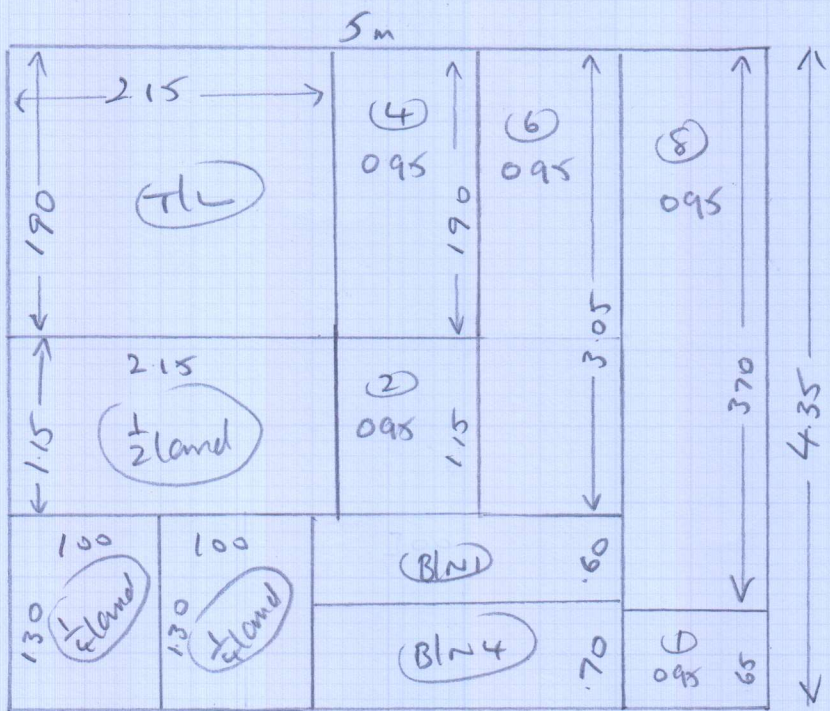 5m
2.15
190
T/L
④
095
190
⑥
095
3.05
⑧
095
370
4.35
2.15
1.15
½ land
②
095
115
100
130
¼ land
100
130
¼ land
B/N1
.60
B/N4
.70
095
65